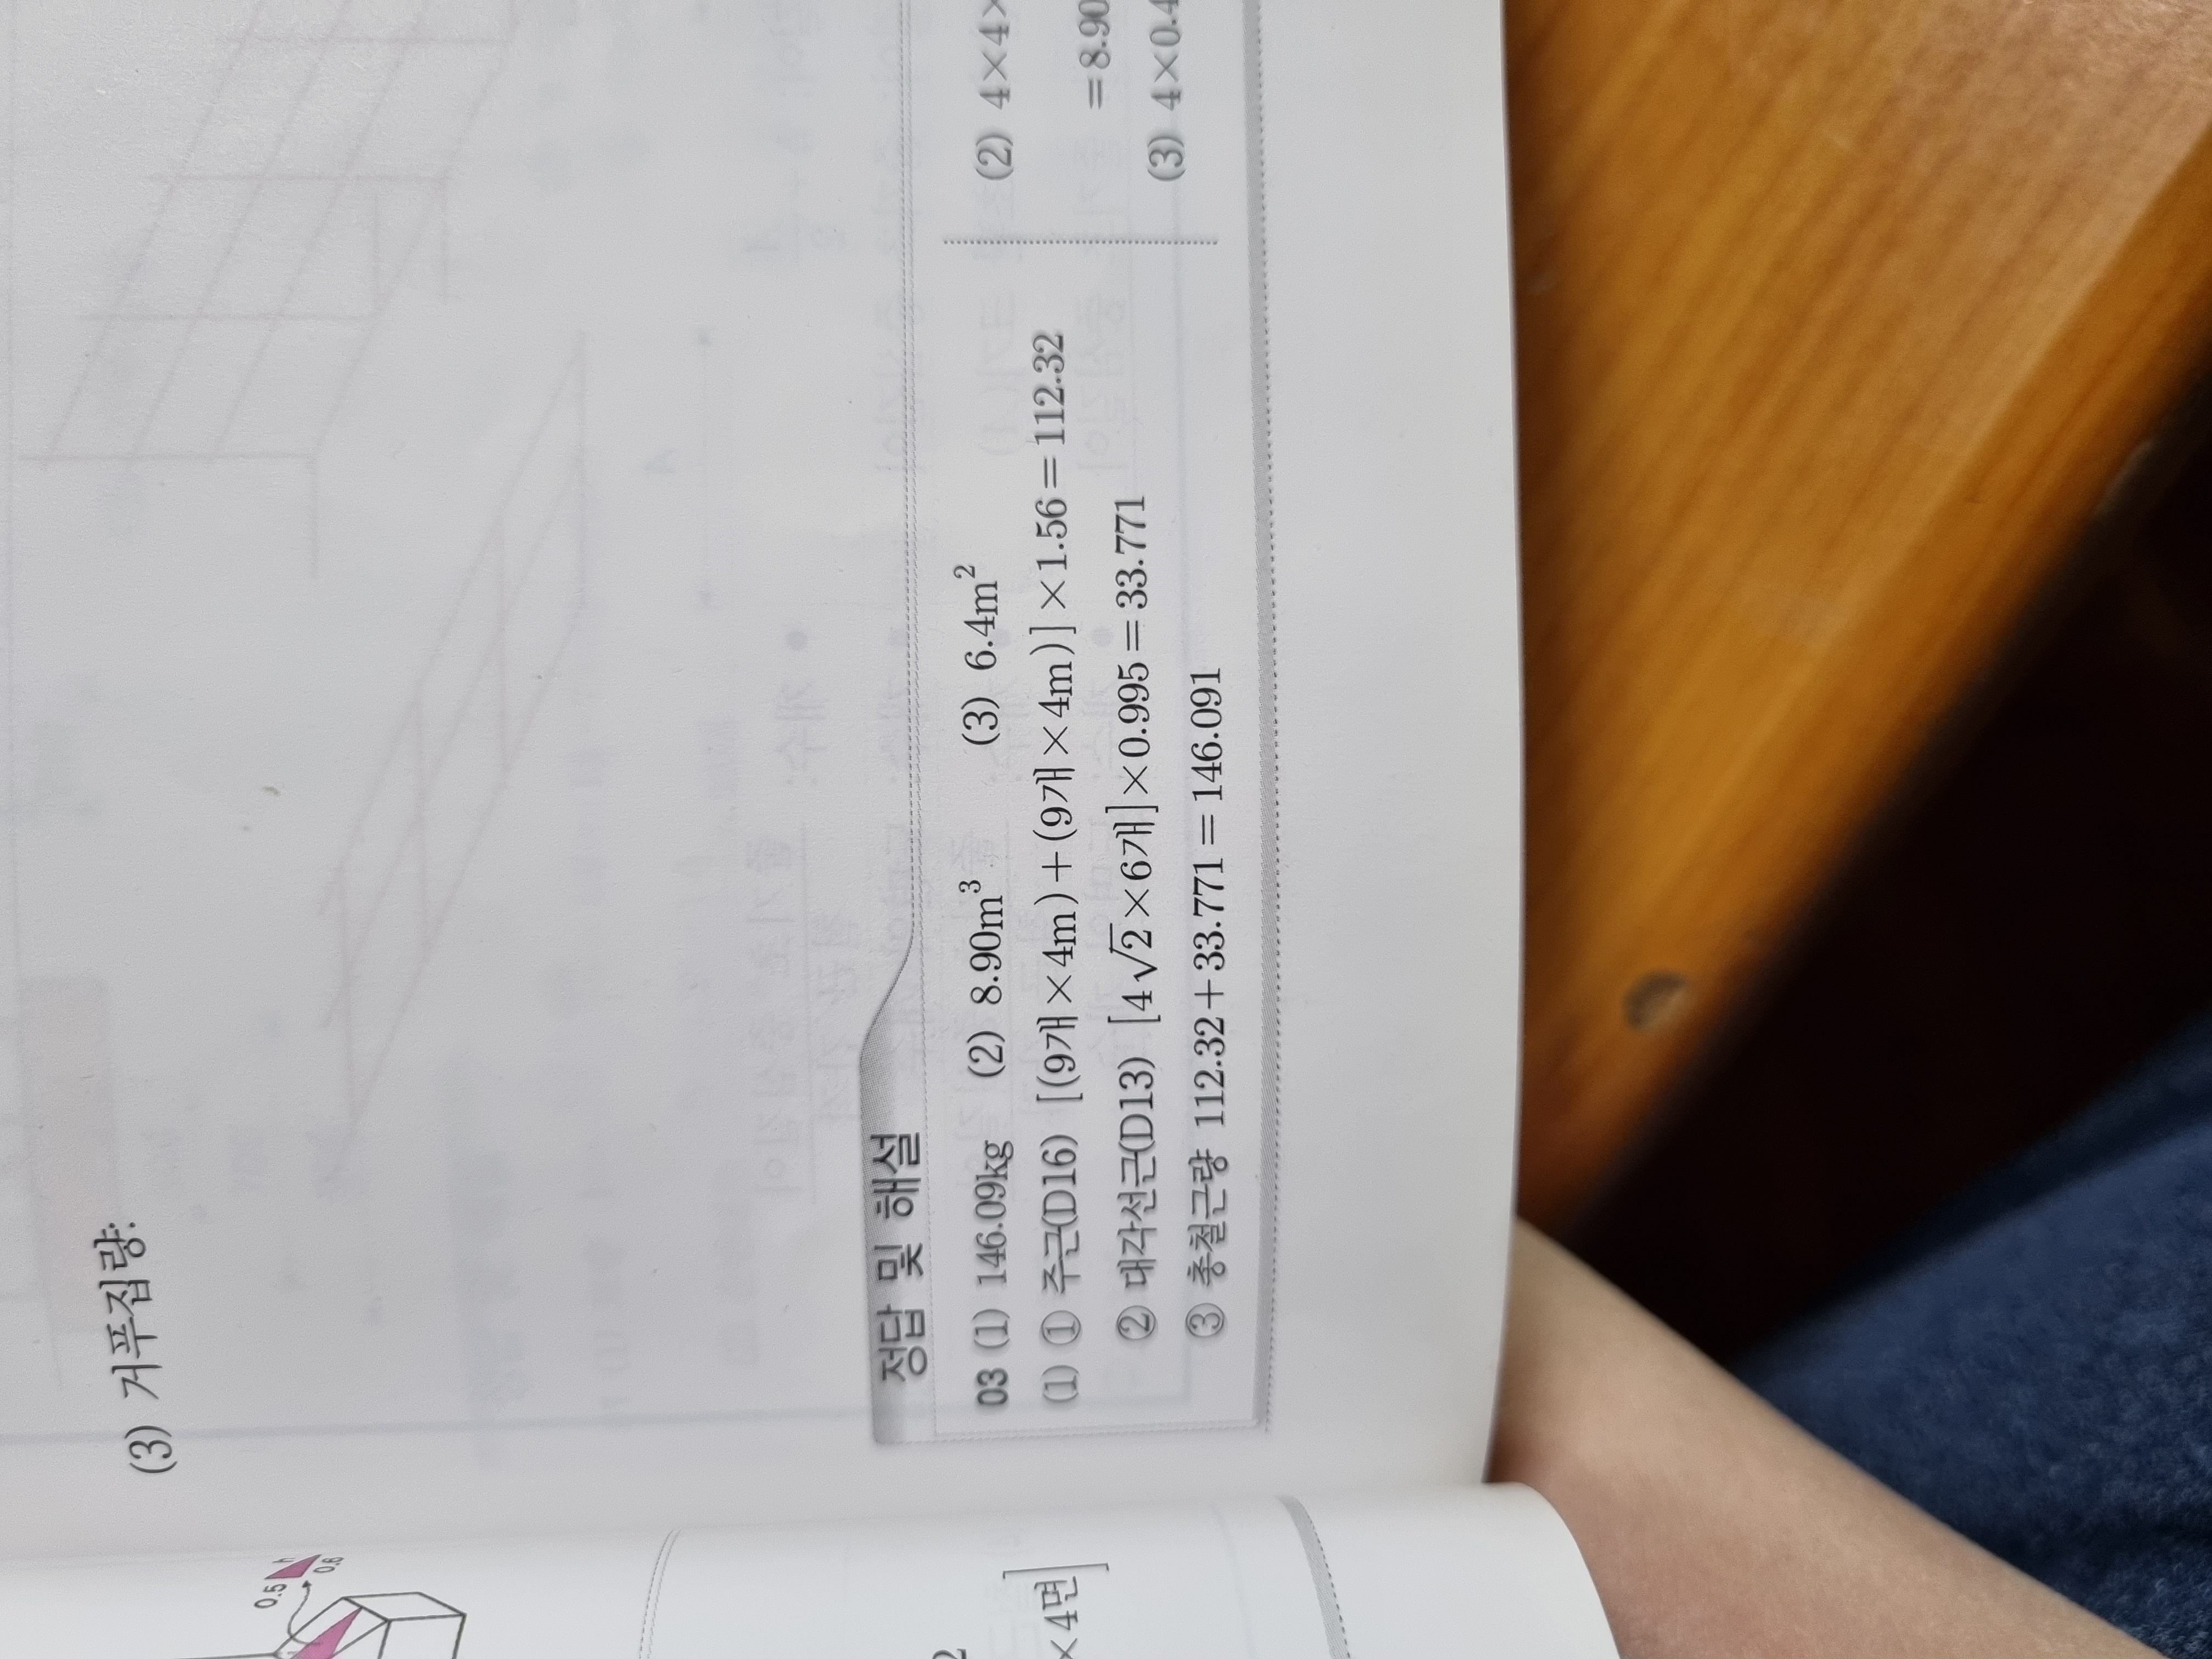 (3) 거푸집량:
정답 및 해설
03 (1) 146.09kg (2) 8.90m³ (3) 6.4m²
(1) ① 주근(D16) [(9개×4m)+(9개×4m)]×1.56=112.32
② 대각선근(D13) [4√2×6개]×0.995=33.771
③ 총철근량 112.32+33.771=146.091
(2) 4×4×
=8.90
(3) 4×0.4
0.5
h
0.6
2
×4면]